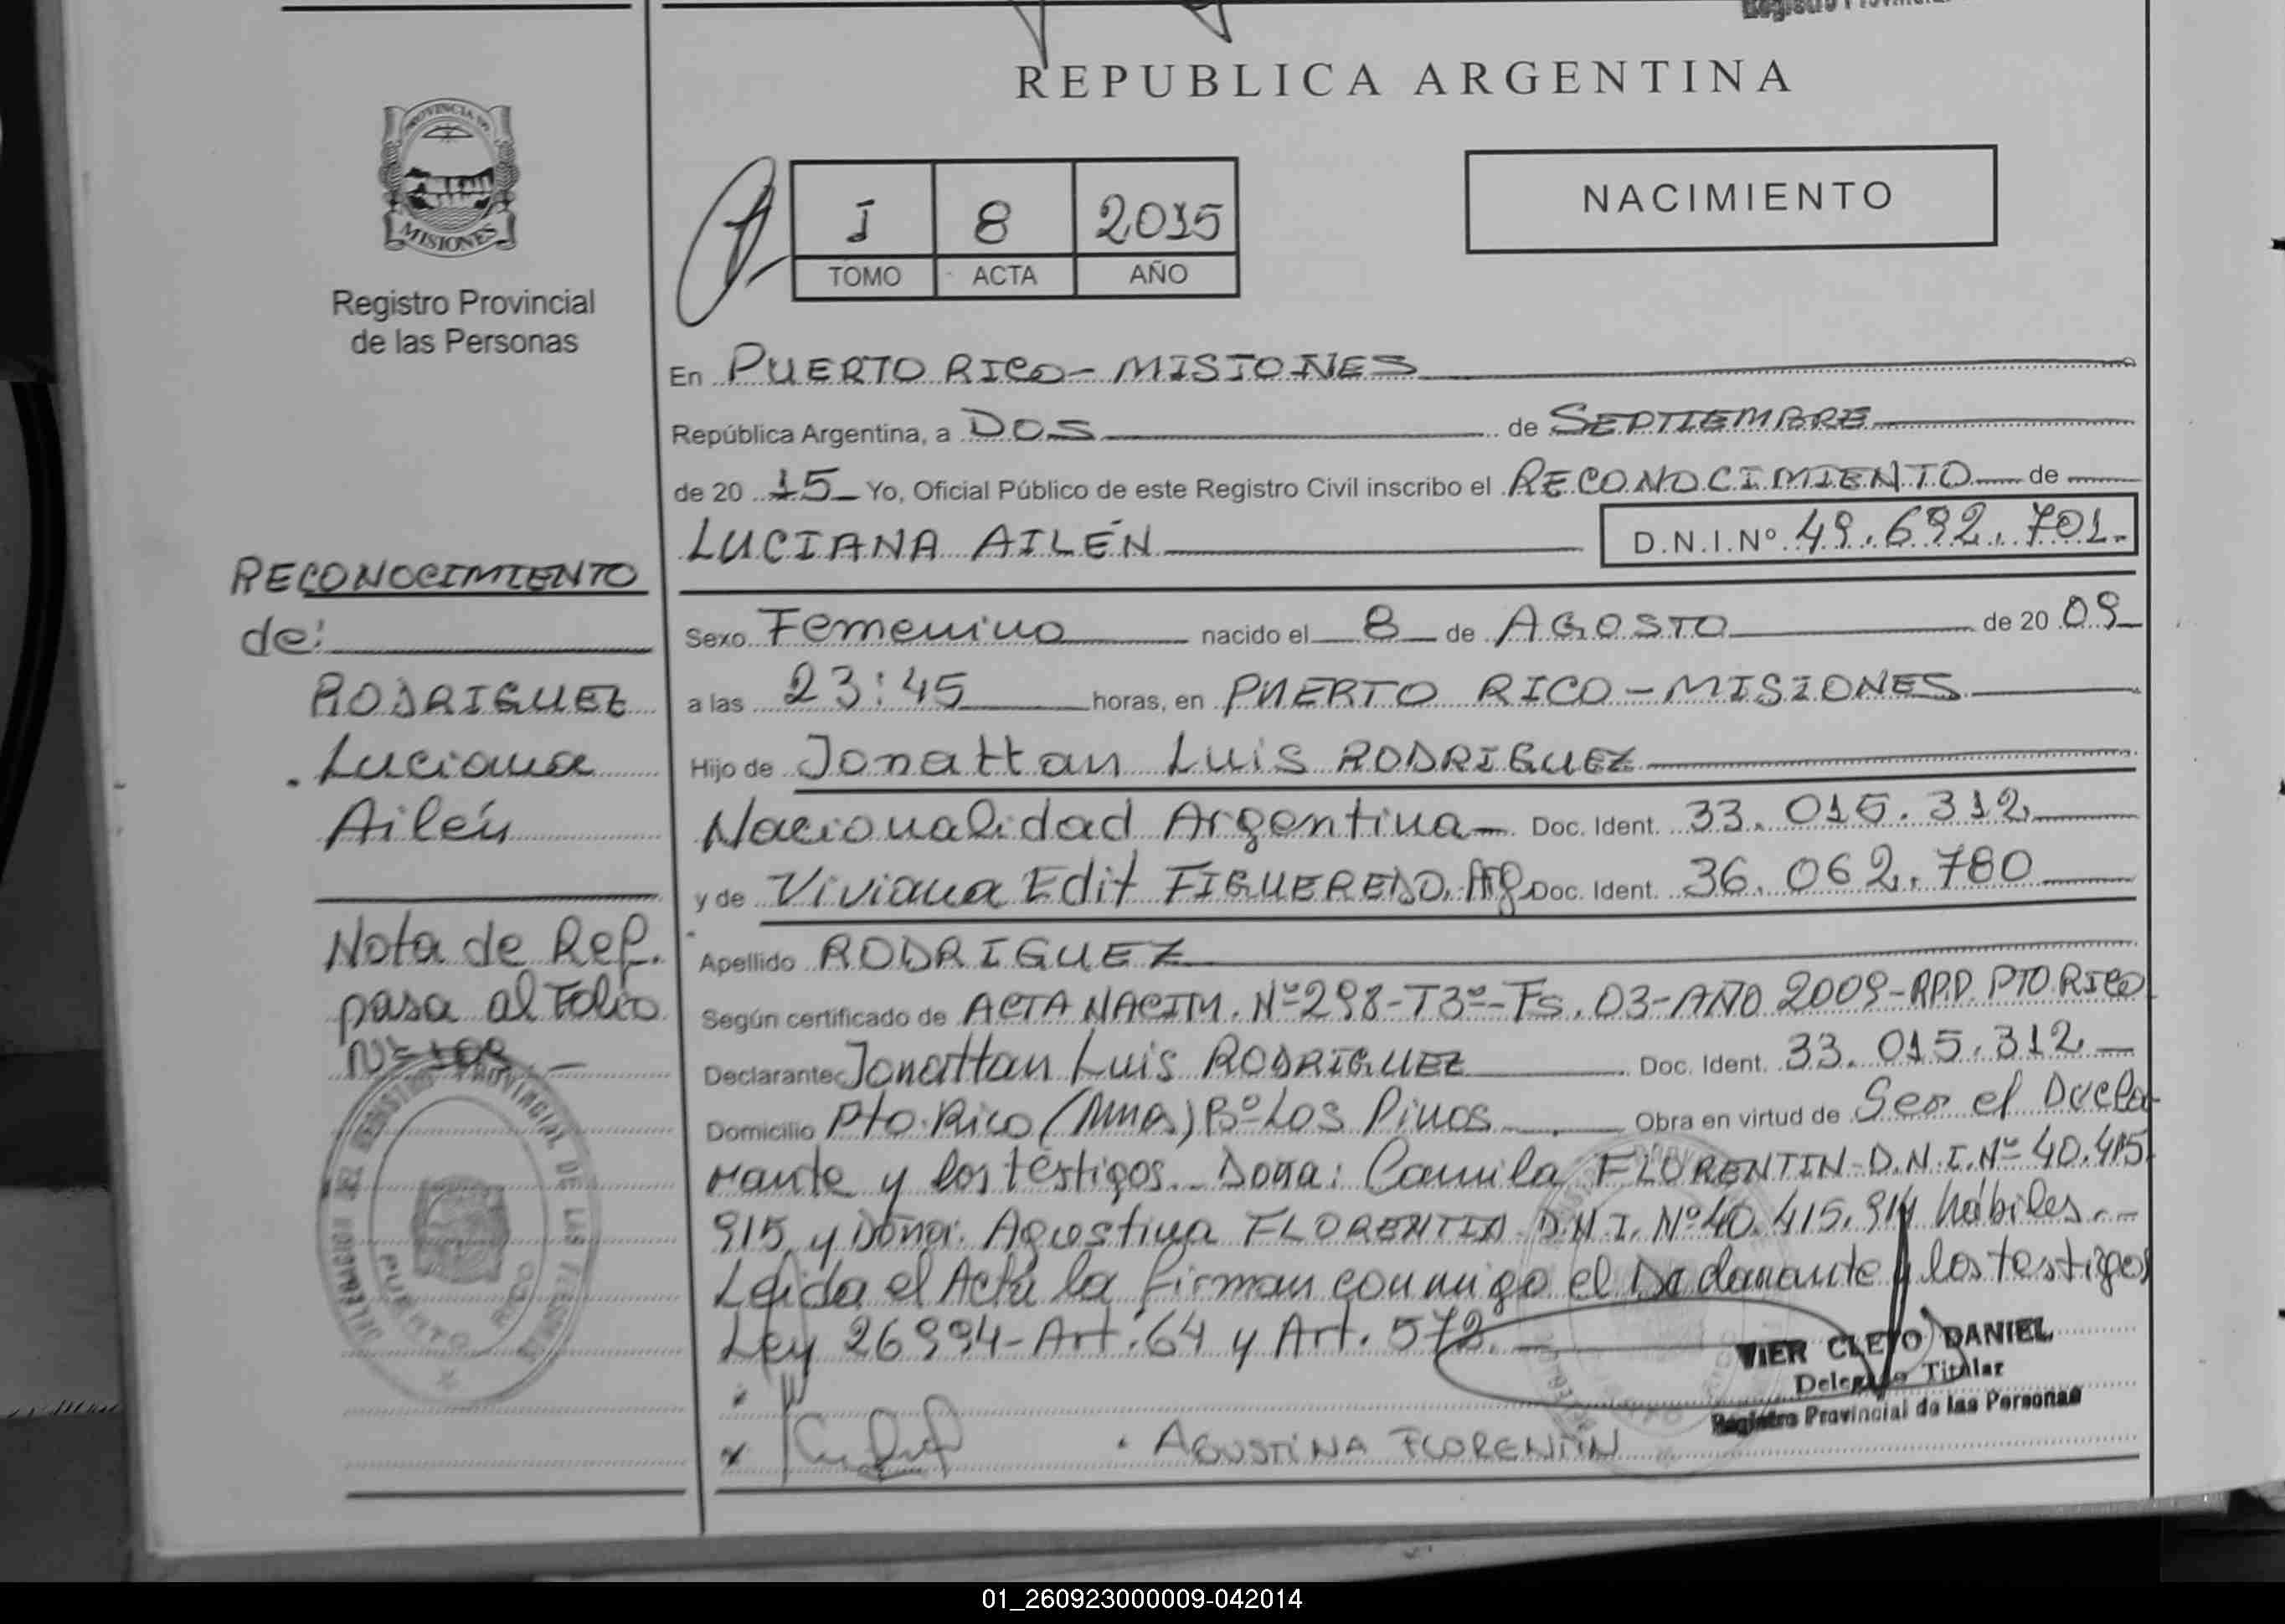 REPUBLICA ARGENTINA
PROVINCIA DE
MISIONES
Registro Provincial
de las Personas
I 8 2015
TOMO ACTA AÑO
NACIMIENTO
En PUERTO RICO - MISIONES
República Argentina, a DOS de SEPTIEMBRE
de 20 15 Yo, Oficial Público de este Registro Civil inscribo el RECONOCIMIENTO de
LUCIANA AILÉN D.N.I.Nº 49.692.701.
Sexo Femenino nacido el 8 de AGOSTO de 20 09
a las 23:45 horas, en PUERTO RICO - MISIONES
Hijo de Jonattan Luis RODRIGUEZ
Nacionalidad Argentina Doc. Ident. 33.015.312
y de Viviana Edit FIGUEREDO, Arg. Doc. Ident. 36.062.780
Apellido RODRIGUEZ
Según certificado de ACTA NACIM. Nº 298-T3º-Fs. 03-AÑO 2009-R.P.P. PTO RICO
Declarante Jonattan Luis RODRIGUEZ Doc. Ident. 33.015.312
Domicilio Pto. Rico (Mnes) Bº Los Pinos Obra en virtud de Ser el Decla
rante y los testigos. Doña: Camila FLORENTIN D.N.I. Nº 40.415.
915 y Doña: Agustina FLORENTIN D.N.I. Nº 40.415.914 hábiles.
Leída el Acta la firman conmigo el Declarante y los testigos
Ley 26994 - Art. 64 y Art. 572.
AGUSTINA FLORENTIN
VIER CLETO DANIEL
Delegado Titular
Registro Provincial de las Personas
RECONOCIMIENTO
de:
RODRIGUEZ
Luciana
Ailén
Nota de Ref.
pasa al Folio
REGISTRO PROVINCIAL DE LAS PERSONAS
PUERTO RICO
01_260923000009-042014